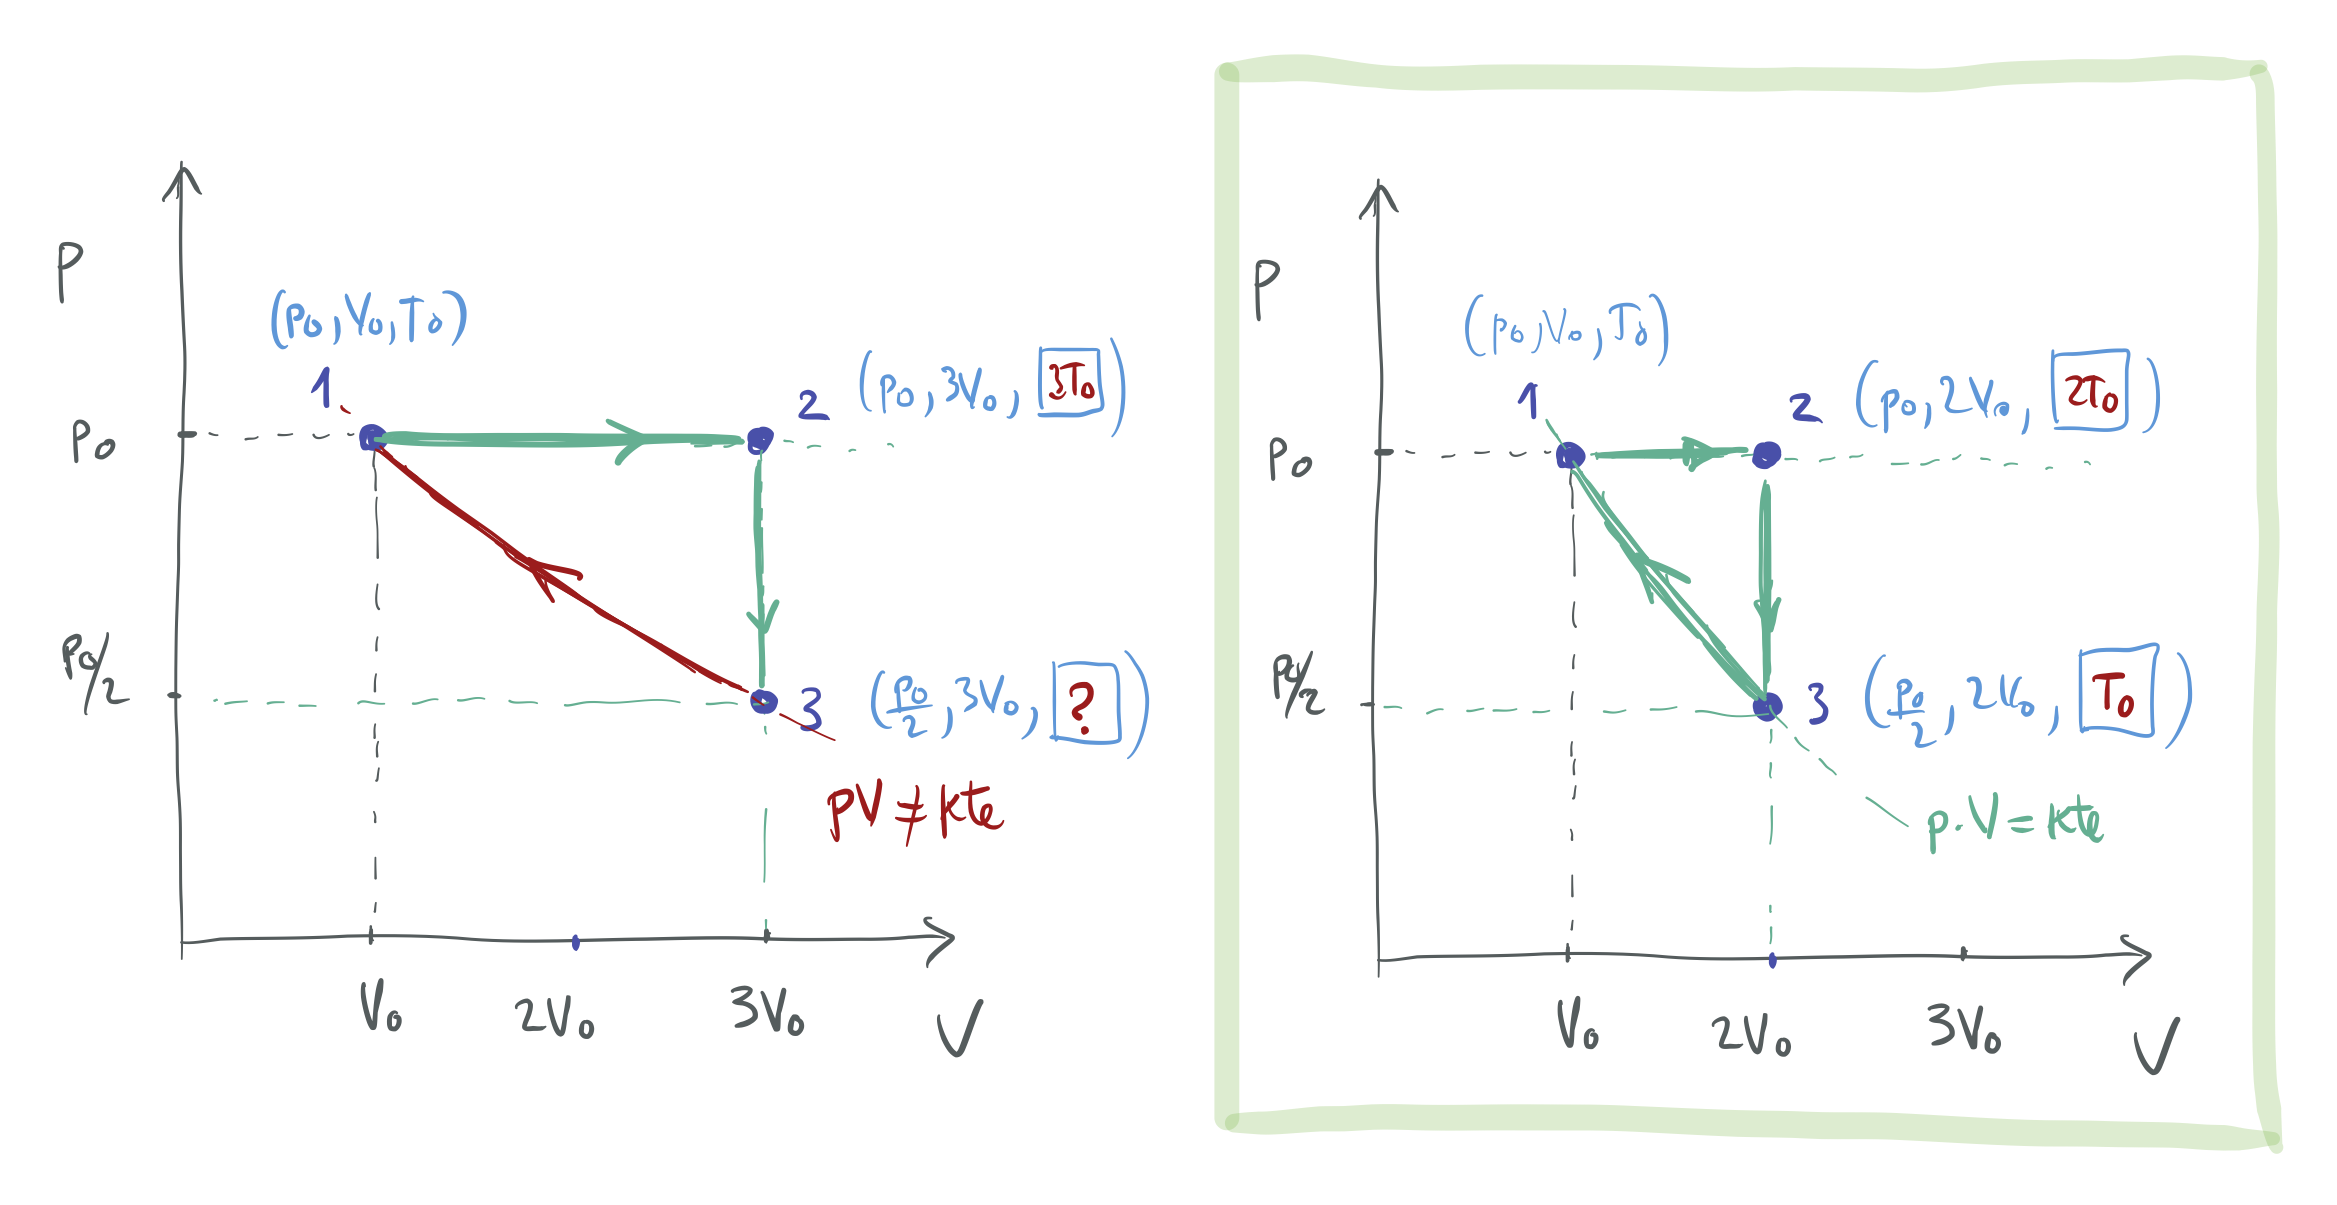 P
(p₀, V₀, T₀)
1
2 (p₀, 3V₀, 3T₀)
p₀
p₀/2
3 (p₀/2, 3V₀, ?)
pV ≠ kte
V₀ 2V₀ 3V₀ V
P
(p₀, V₀, T₀)
1
2 (p₀, 2V₀, 2T₀)
p₀
p₀/2
3 (p₀/2, 2V₀, T₀)
p·V = kte
V₀ 2V₀ 3V₀ V